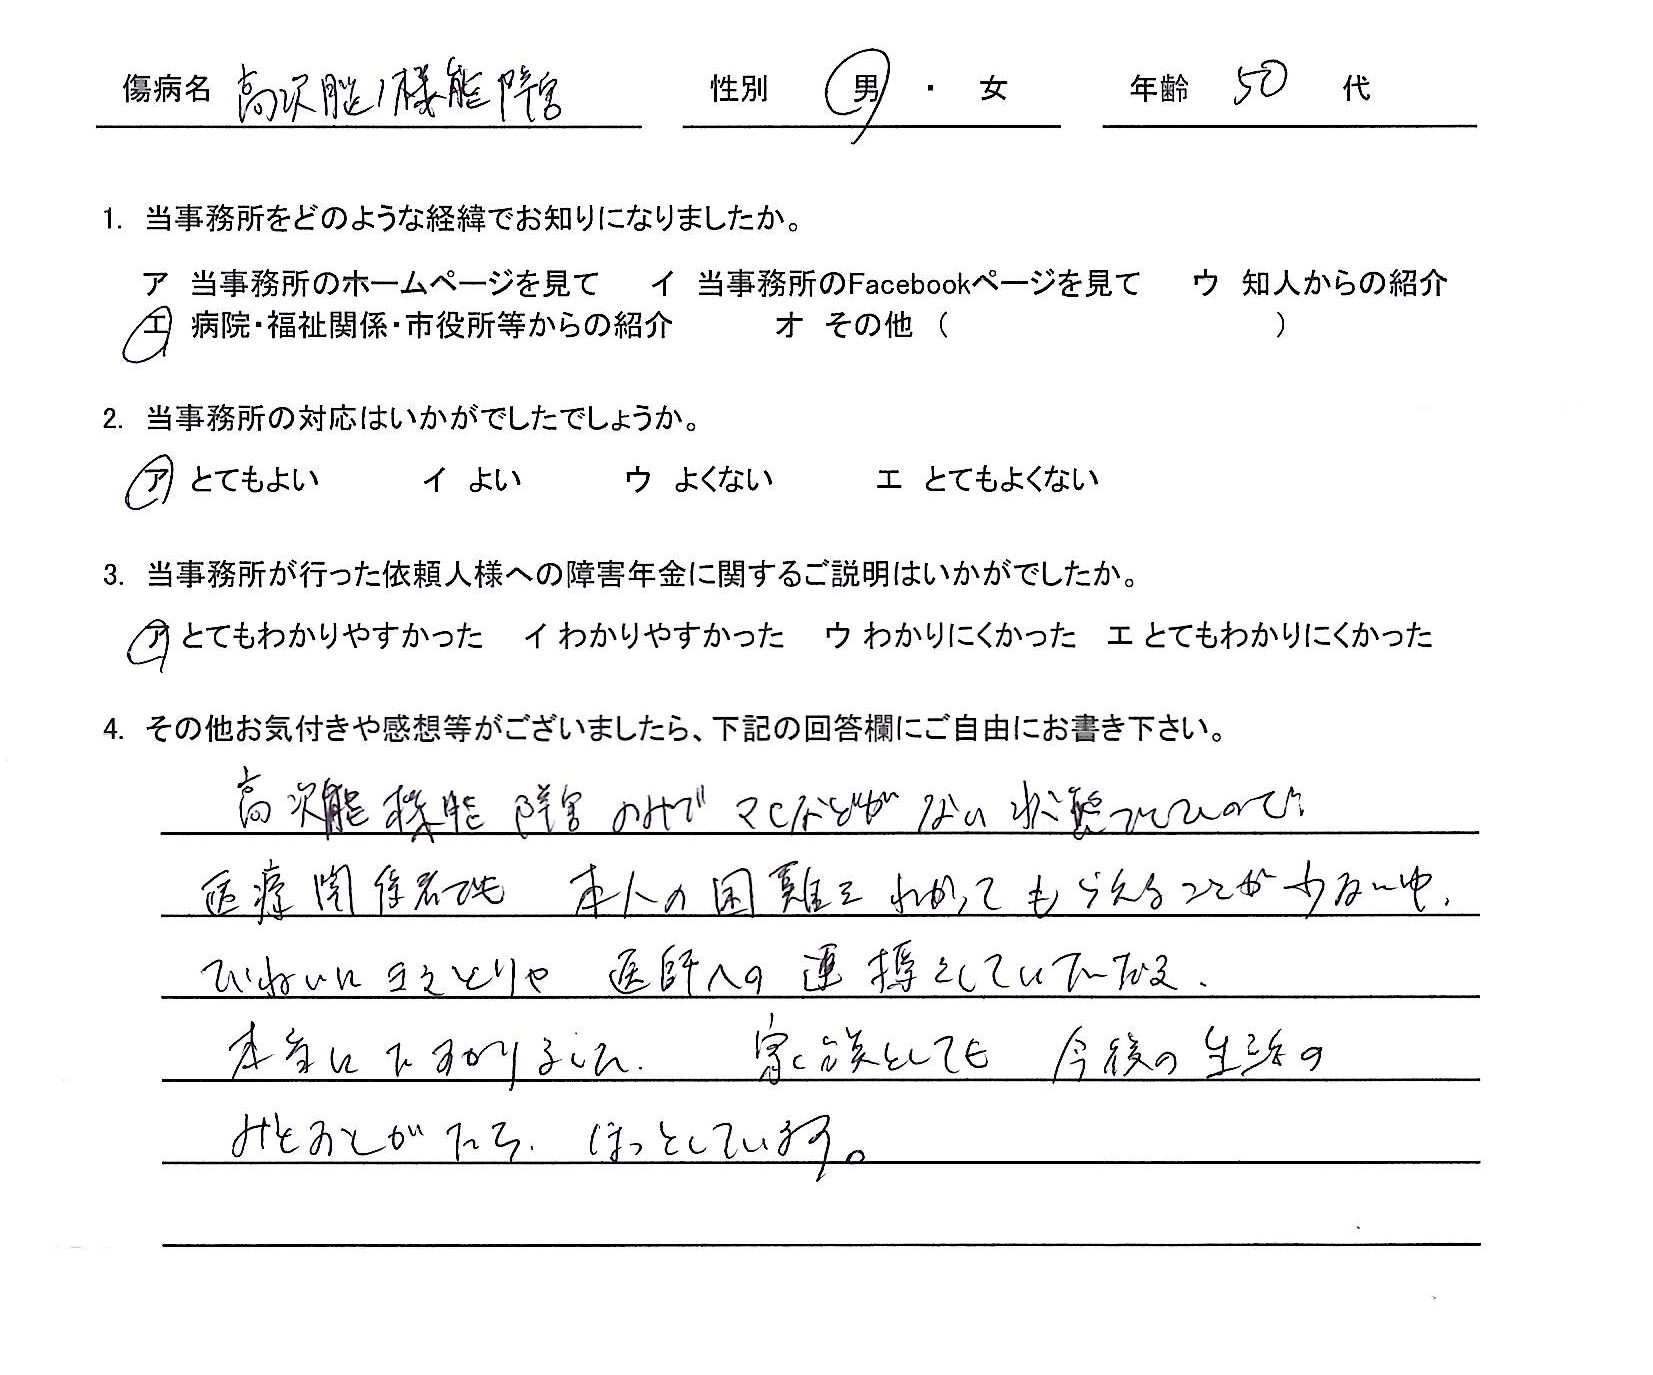 傷病名 高次脳機能障害 性別 男 ・ 女 年齢 50 代
1. 当事務所をどのような経緯でお知りになりましたか。
ア 当事務所のホームページを見て イ 当事務所のFacebookページを見て ウ 知人からの紹介
エ 病院・福祉関係・市役所等からの紹介 オ その他 （ ）
2. 当事務所の対応はいかがでしたでしょうか。
ア とてもよい イ よい ウ よくない エ とてもよくない
3. 当事務所が行った依頼人様への障害年金に関するご説明はいかがでしたか。
ア とてもわかりやすかった イ わかりやすかった ウ わかりにくかった エ とてもわかりにくかった
4. その他お気付きや感想等がございましたら、下記の回答欄にご自由にお書き下さい。
高次脳機能障害のみでマヒなどがない状態
医療関係者でも 本人の困難をわかってもらえることが少ない中、
ていねいに ききとりや 医師への連携をしていただき、
本当にたすかりました。 家族としても 今後の生活の
みとおしがたち、ほっとしています。